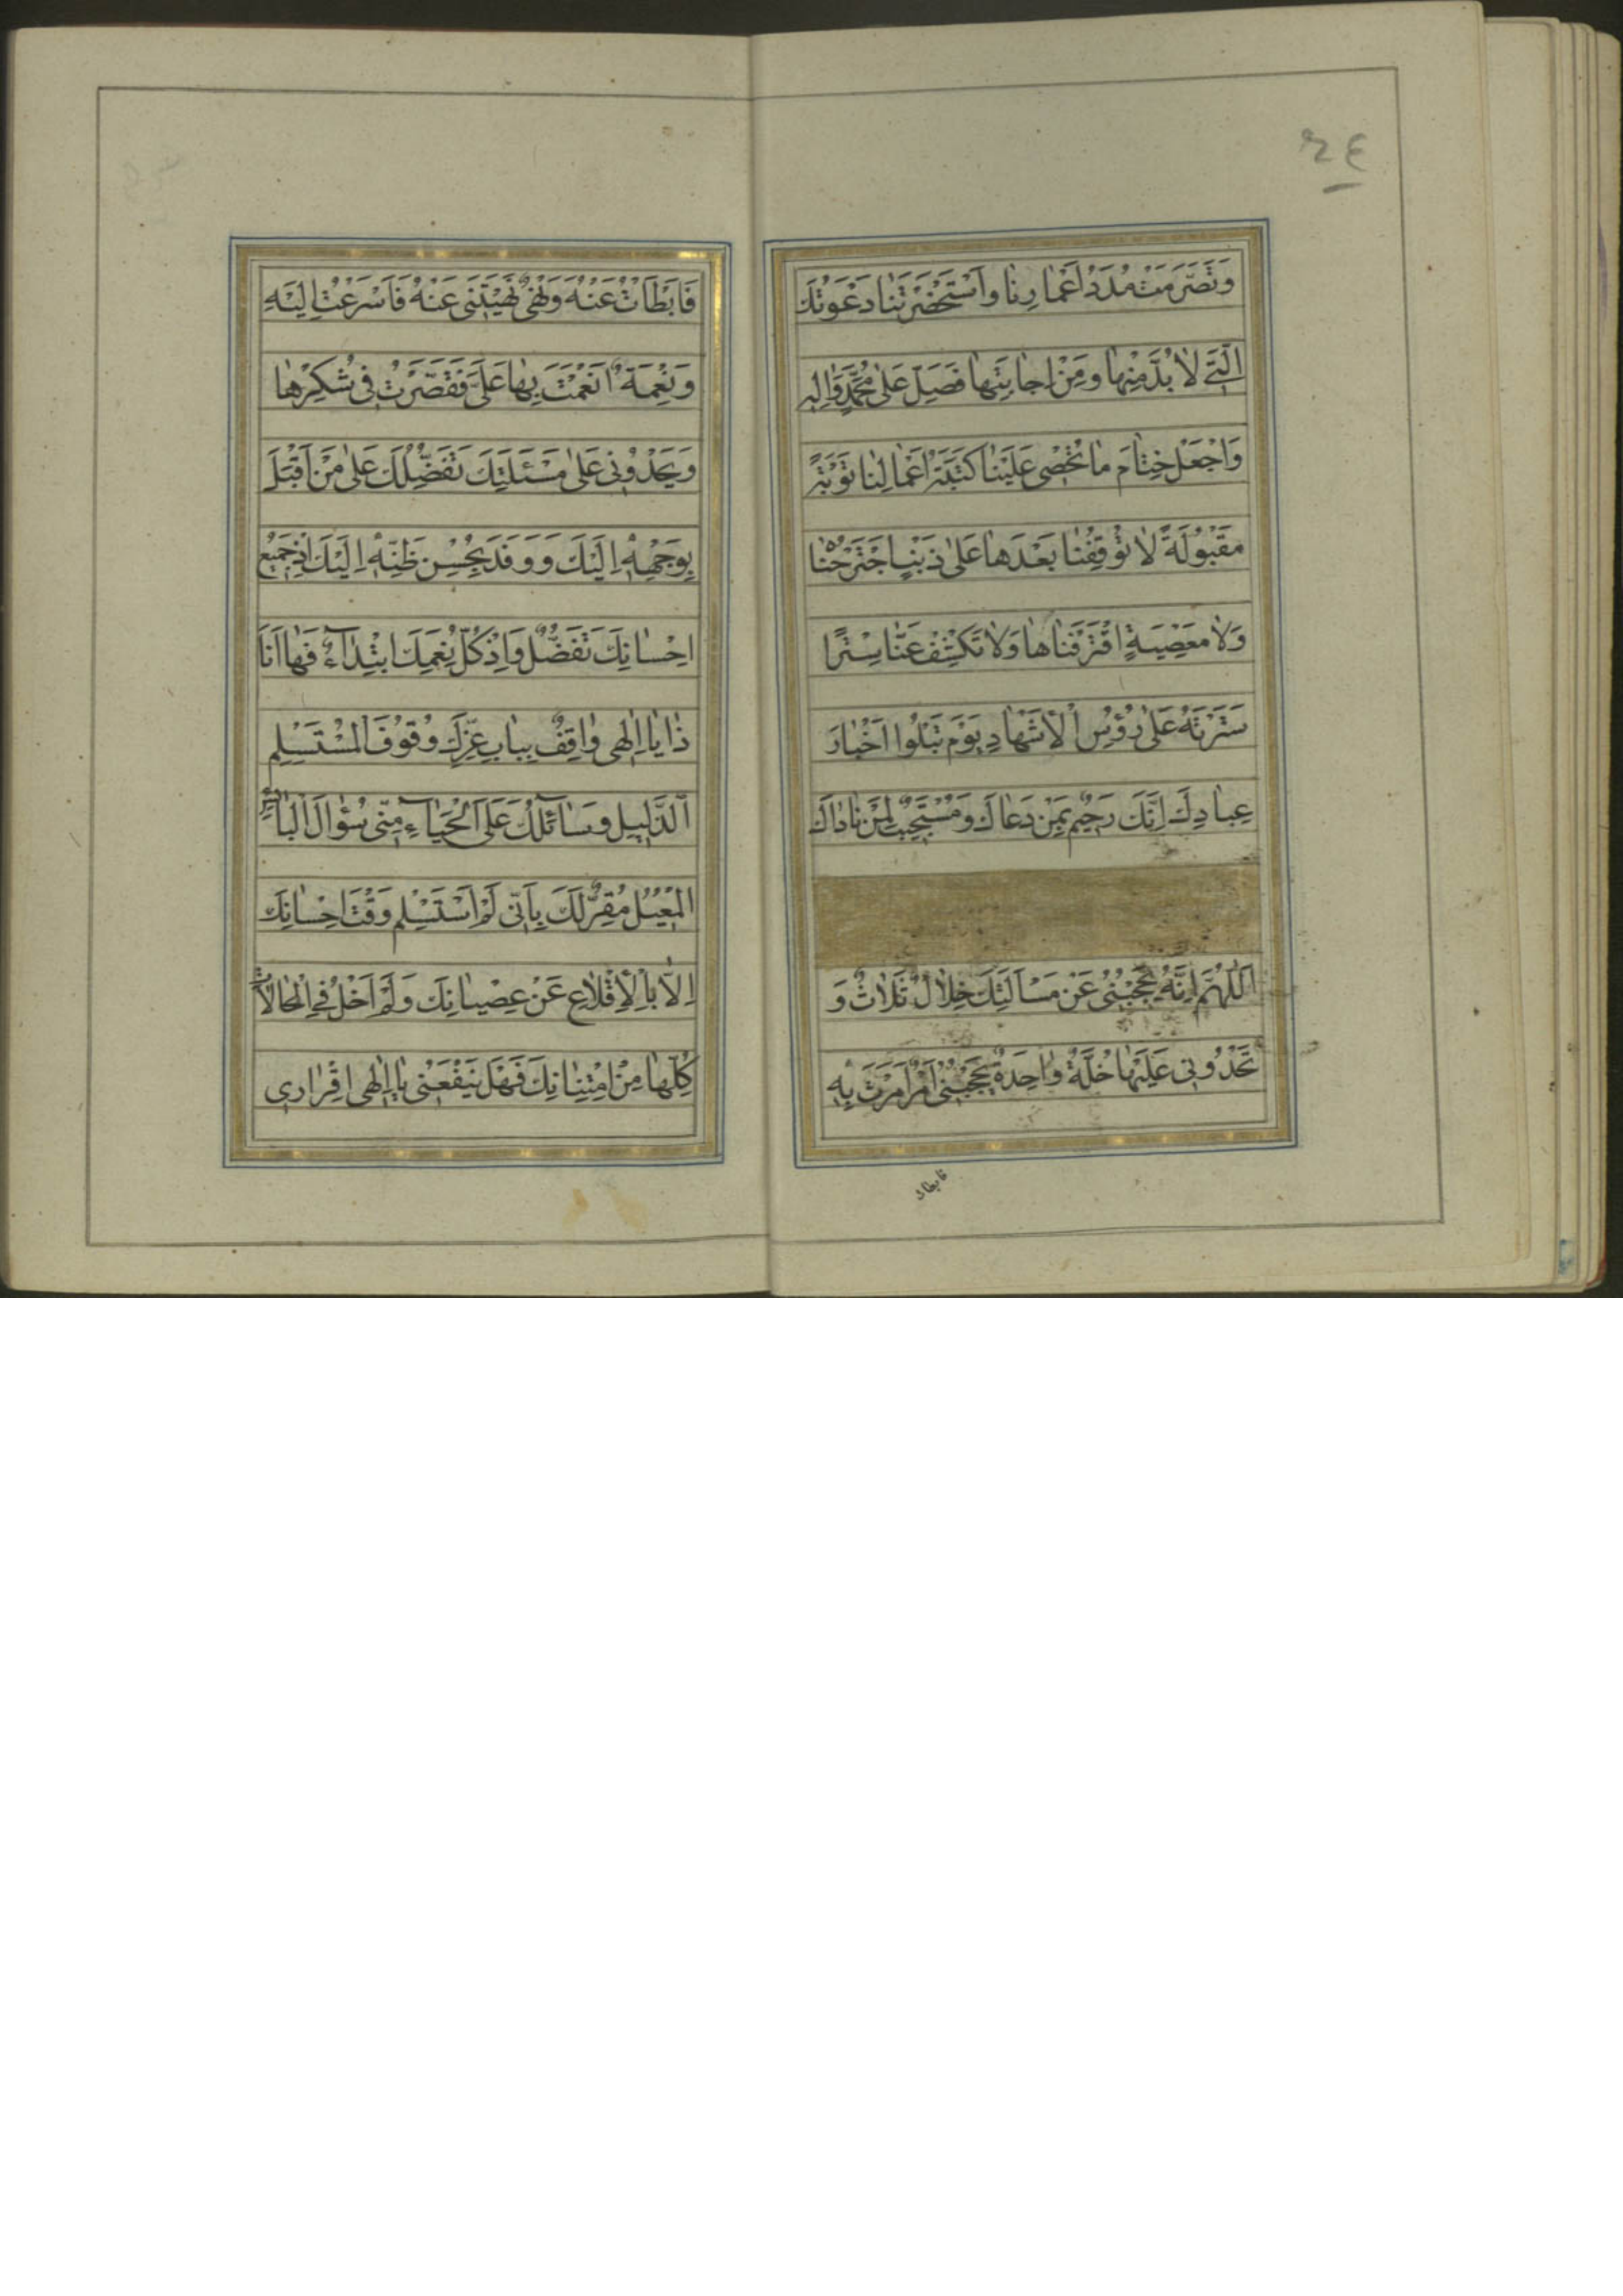 ٢٤
وَتَصَرَّمَتْ مُدَدُ اَعْمارِنا وَاسْتَحْضَرَتْنا دَعْوَتُكَ
الَّتی لابُدَّ مِنْها وَمِنْ اِجابَتِها فَصَلِّ عَلی مُحَمَّدٍ وَالِهِ
وَاجْعَلْ خِتامَ ما تُحْصی عَلَیْنا کَتَبَةُ اَعْمالِنا تَوْبَةً
مَقْبُولَةً لا تُوْقِفُنا بَعْدَها عَلی ذَنْبٍ اجْتَرَحْناهُ
وَلا مَعْصِیَةٍ اقْتَرَفْناها وَلا تَکْشِفْ عَنّا سِتْرًا
سَتَرْتَهُ عَلی رُؤُسِ الْاَشْهادِ یَوْمَ تَبْلُوا اَخْبارَ
عِبادِكَ اِنَّكَ رَحیمٌ بِمَنْ دَعاكَ وَمُسْتَجیبٌ لِمَنْ ناداكَ
اَللّهُمَّ اِنَّهُ یَحْجُبُنی عَنْ مَسْاَلَتِكَ خِلالٌ ثَلاثٌ وَ
تَحْدُونی عَلَیْها خَلَّةٌ واحِدَةٌ یَحْجُبُنی اَمْرٌ اَمَرْتَ بِهِ
فابطات
فَاَبْطَاْتُ عَنْهُ وَنَهْیٌ نَهَیْتَنی عَنْهُ فَاَسْرَعْتُ اِلَیْهِ
وَنِعْمَةٌ اَنْعَمْتَ بِها عَلَیَّ فَقَصَّرْتُ فی شُکْرِها
وَیَحْدُونی عَلی مَسْئَلَتِكَ تَفَضُّلُكَ عَلی مَنْ اَقْبَلَ
بِوَجْهِهِ اِلَیْكَ وَ وَفَدَ بِحُسْنِ ظَنِّهِ اِلَیْكَ اِذْ جَمیعُ
اِحْسانِكَ تَفَضُّلٌ وَاِذْ کُلُّ نِعَمِكَ ابْتِداءٌ فَها اَنَا
ذا یا اِلهی واقِفٌ بِبابِ عِزِّكَ وُقُوفَ الْمُسْتَسْلِمِ
الذَّلیلِ وَسائِلُكَ عَلَی الْحَیاءِ مِنّی سُؤالَ الْبائِسِ
الْمُعیلِ مُقِرٌّ لَكَ بِاَنّی لَمْ اَسْتَسْلِمْ وَقْتَ اِحْسانِكَ
اِلّا بِالْاِقْلاعِ عَنْ عِصْیانِكَ وَلَمْ اَخْلُ فِی الْحالاتِ
کُلِّها مِنْ اِمْتِنانِكَ فَهَلْ یَنْفَعُنی یا اِلهی اِقْراری